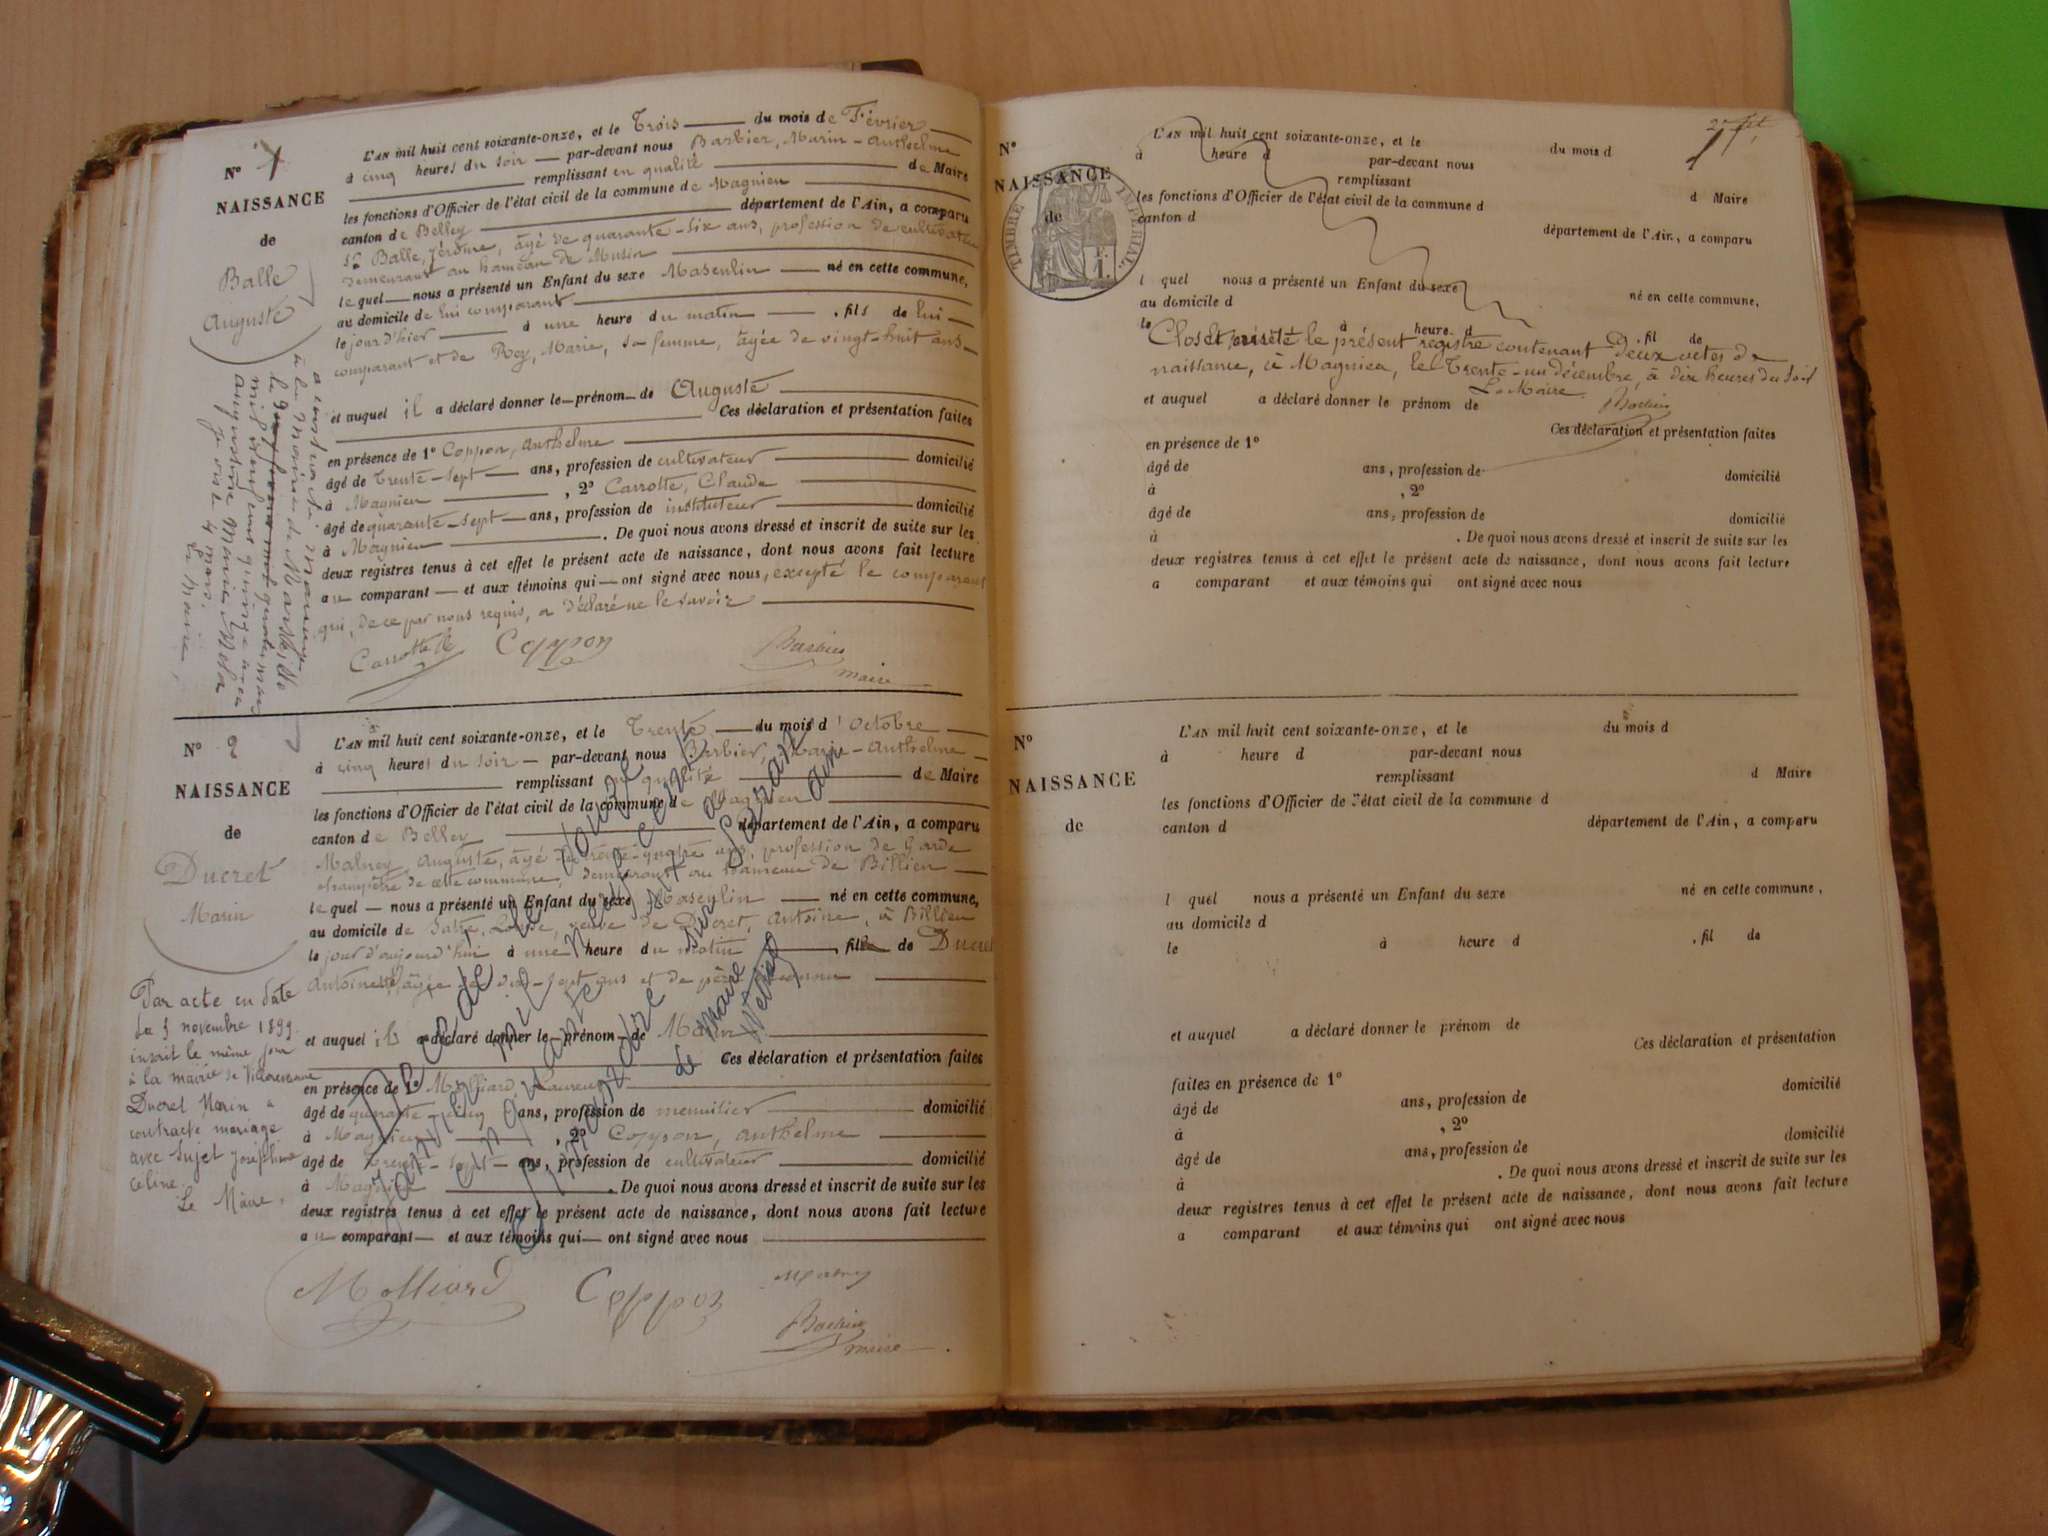 N° 1
NAISSANCE
de
Balle
Auguste
L'AN mil huit cent soixante-onze, et le Trois du mois de Février
à cinq heures du soir par-devant nous Barbier, Marin-Anthelme
remplissant en qualité de Maire
les fonctions d'Officier de l'état civil de la commune de Magnieu
canton de Belley département de l'Ain, a comparu
sr Balle, Jérôme, âgé de quarante-six ans, profession de cultivateur
demeurant au hameau de Musin
lequel nous a présenté un Enfant du sexe Masculin né en cette commune,
au domicile de lui comparant
le jour d'hier à une heure du matin , fils de lui
comparant et de Rey, Marie, sa femme, âgée de vingt-huit ans
et auquel il a déclaré donner le prénom de Auguste
Ces déclaration et présentation faites
en présence de 1° Coppon, Anthelme
âgé de Trente-sept ans, profession de cultivateur domicilié
à Magnieu , 2° Carrotte, Claude
âgé de quarante-sept ans, profession de instituteur domicilié
à Magnieu . De quoi nous avons dressé et inscrit de suite sur les
deux registres tenus à cet effet le présent acte de naissance, dont nous avons fait lecture
au comparant et aux témoins qui ont signé avec nous, excepté le comparant
qui, de ce par nous requis, a déclaré ne le savoir
Carrotte Coppon Barbier
maire
a contracté mariage
à la Mairie de Marseille
mil neuf cent quinze avec
Augustine Marie
le 4 mars
Le Maire,
N° 2
NAISSANCE
de
Ducret
Marin
L'AN mil huit cent soixante-onze, et le Trente du mois d'Octobre
à cinq heures du soir par-devant nous Barbier, Marin-Anthelme
remplissant en qualité de Maire
les fonctions d'Officier de l'état civil de la commune de Magnieu
canton de Belley département de l'Ain, a comparu
Malney, Auguste, âgé de trente-quatre ans, profession de Garde
champêtre de cette commune, demeurant au hameau de Billieu
lequel nous a présenté un Enfant du sexe Masculin né en cette commune,
au domicile de Louise, veuve de Ducret, Antoine, à Billieu
le jour d'aujourd'hui à une heure du matin , fils de Ducret
Antoinette, âgée de dix-sept ans et de père inconnu
et auquel il a déclaré donner le prénom de Marin
Ces déclaration et présentation faites
en présence de 1° Molliard, Laurent
âgé de quarante-cinq ans, profession de menuisier domicilié
à Magnieu , 2° Coppon, Anthelme
âgé de Trente-sept ans, profession de cultivateur domicilié
à Magnieu . De quoi nous avons dressé et inscrit de suite sur les
deux registres tenus à cet effet le présent acte de naissance, dont nous avons fait lecture
au comparant et aux témoins qui ont signé avec nous
Molliard Coppon Malney
Barbier
maire
Par acte en date
du 5 novembre 1899
inscrit le même jour
à la mairie de Villeurbanne
Ducret Marin a
contracté mariage
avec Sujet Joséphine
Céline.
Le Maire,
Décédé le douze
janvier mil neuf cent
cinquante
sur Suran
Ain
le maire
2e fet
N°
NAISSANCE
de
TIMBRE IMPERIAL
1 F.
L'AN mil huit cent soixante-onze, et le du mois d
à heure d par-devant nous
remplissant d Maire
les fonctions d'Officier de l'état civil de la commune d
canton d département de l'Ain, a comparu
l quel nous a présenté un Enfant du sexe né en cette commune,
au domicile d
le à heure d , fil de
Clos et arrêté le présent registre contenant deux actes de
naissance, à Magnieu, le Trente-un décembre, à dix heures du soir
Le Maire.
Barbier
et auquel a déclaré donner le prénom de
Ces déclaration et présentation faites
en présence de 1°
âgé de ans, profession de domicilié
à , 2°
âgé de ans, profession de domicilié
à . De quoi nous avons dressé et inscrit de suite sur les
deux registres tenus à cet effet le présent acte de naissance, dont nous avons fait lecture
a comparant et aux témoins qui ont signé avec nous
N°
NAISSANCE
de
L'AN mil huit cent soixante-onze, et le du mois d
à heure d par-devant nous
remplissant d Maire
les fonctions d'Officier de l'état civil de la commune d
canton d département de l'Ain, a comparu
l quel nous a présenté un Enfant du sexe né en cette commune,
au domicile d
le à heure d , fil de
et auquel a déclaré donner le prénom de
Ces déclaration et présentation
faites en présence de 1°
âgé de ans, profession de domicilié
à , 2°
âgé de ans, profession de domicilié
à . De quoi nous avons dressé et inscrit de suite sur les
deux registres tenus à cet effet le présent acte de naissance, dont nous avons fait lecture
a comparant et aux témoins qui ont signé avec nous